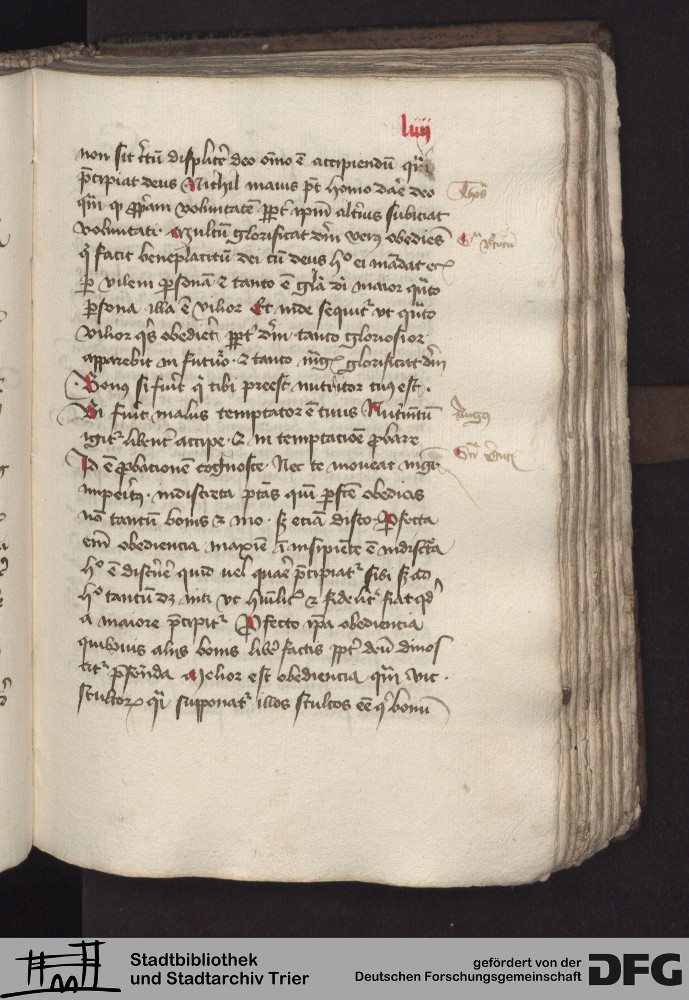 liiij
non sit cſtū displicēs deo oīno ē accipiendū
pcipiat deus Nichil maius pt homo dare deo
Thōs
qm̄ q̄ ppriam voluntatē ppt ipm̄ altrius subiciat
voluntati Multū glorificat dm̄ verꝰ obediēs
q̄ facit beneplacitū dei cū deus hͦ ei mādat
p vilem psonam ⁊ tanto ē gl̄a dī maior qn̄to
psona illa ē vilior Et inde sequitr vt qn̄to
vilior qs obedieт ppt dm̄ tanto gloriosior
apparebit in futuro ⁊ tanto mgͥ glorificat dm̄
Bonꝰ si fuit q̄ tibi preest nutritor tuꝰ est
Si fuit malus temptator ē tuus Nutm̄tū
Augꝰ
igitr libent accipe ⁊ in temptacōe pbare
Id ē pbacionem cognosce Nec te moueat
imperitꝰ indiscreta ptas qm̄ pfcē obedias
nō tantū bonis ⁊ mo sꝫ eciā disco Pfecta
em̄ obediencia maxīe ī insipiente ē indiscta
hͦ ē discn̄e quid uel quare pcipiatr sibi sꝫ ad
hͦ tantū dꝫ niti vt hūilitr ⁊ fidelitr fiat qd
a maiore pcipitr Pfecto ipa obediencia
quibuuis aliis bonis libē factis ppt deū dinos
citr pfonda Melior est obediencia qm̄ vic
stultorꝫ qr supponatr illos stultos eē q̄ bonū
Stadtbibliothek
und Stadtarchiv Trier
gefördert von der
Deutschen Forschungsgemeinschaft
DFG